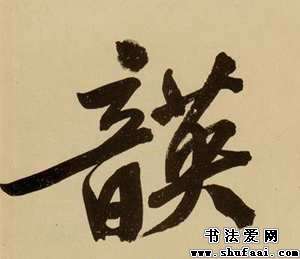 韺
书法爱网
www.shufaai.com